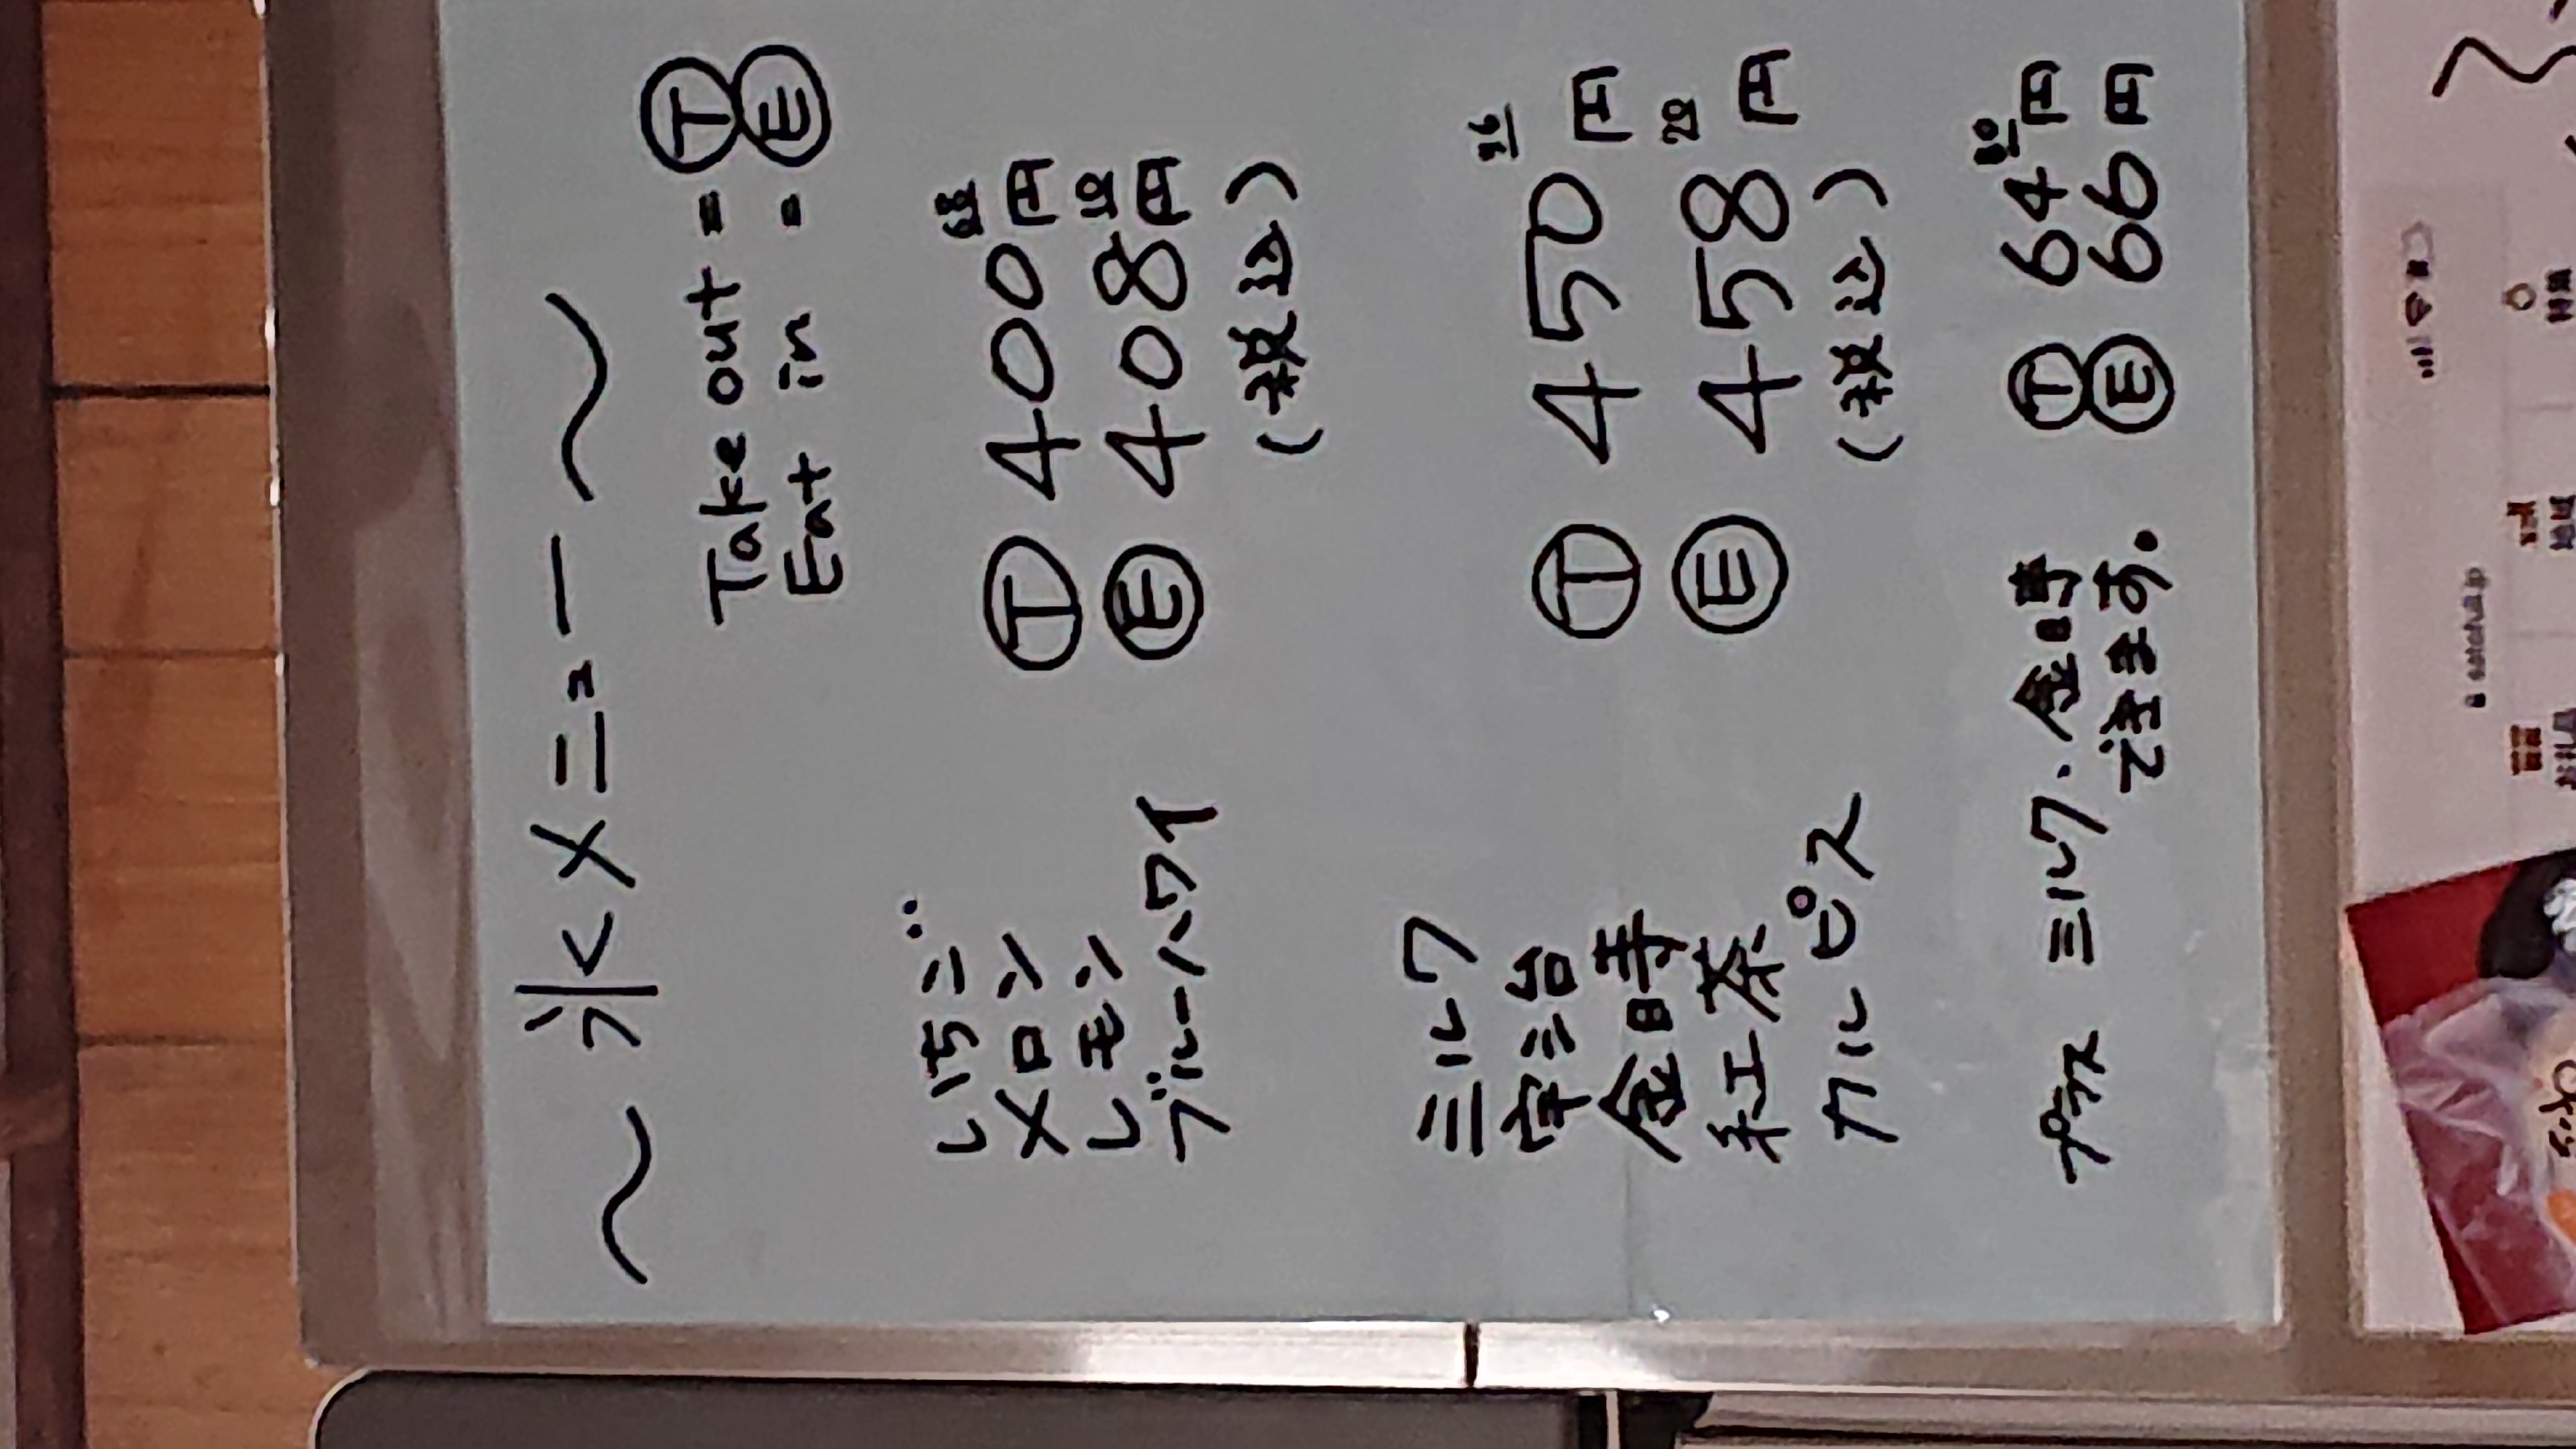 〜 氷メニュー 〜
Take out = Ⓣ
Eat in = Ⓔ
いちご
メロン
レモン
ブルーハワイ
Ⓣ 400円
Ⓔ 408円
(税込)
ミルク
宇治
金時
紅茶
カルピス
Ⓣ 450円
Ⓔ 458円
(税込)
プラス ミルク・金時
Ⓣ 64円
Ⓔ 66円